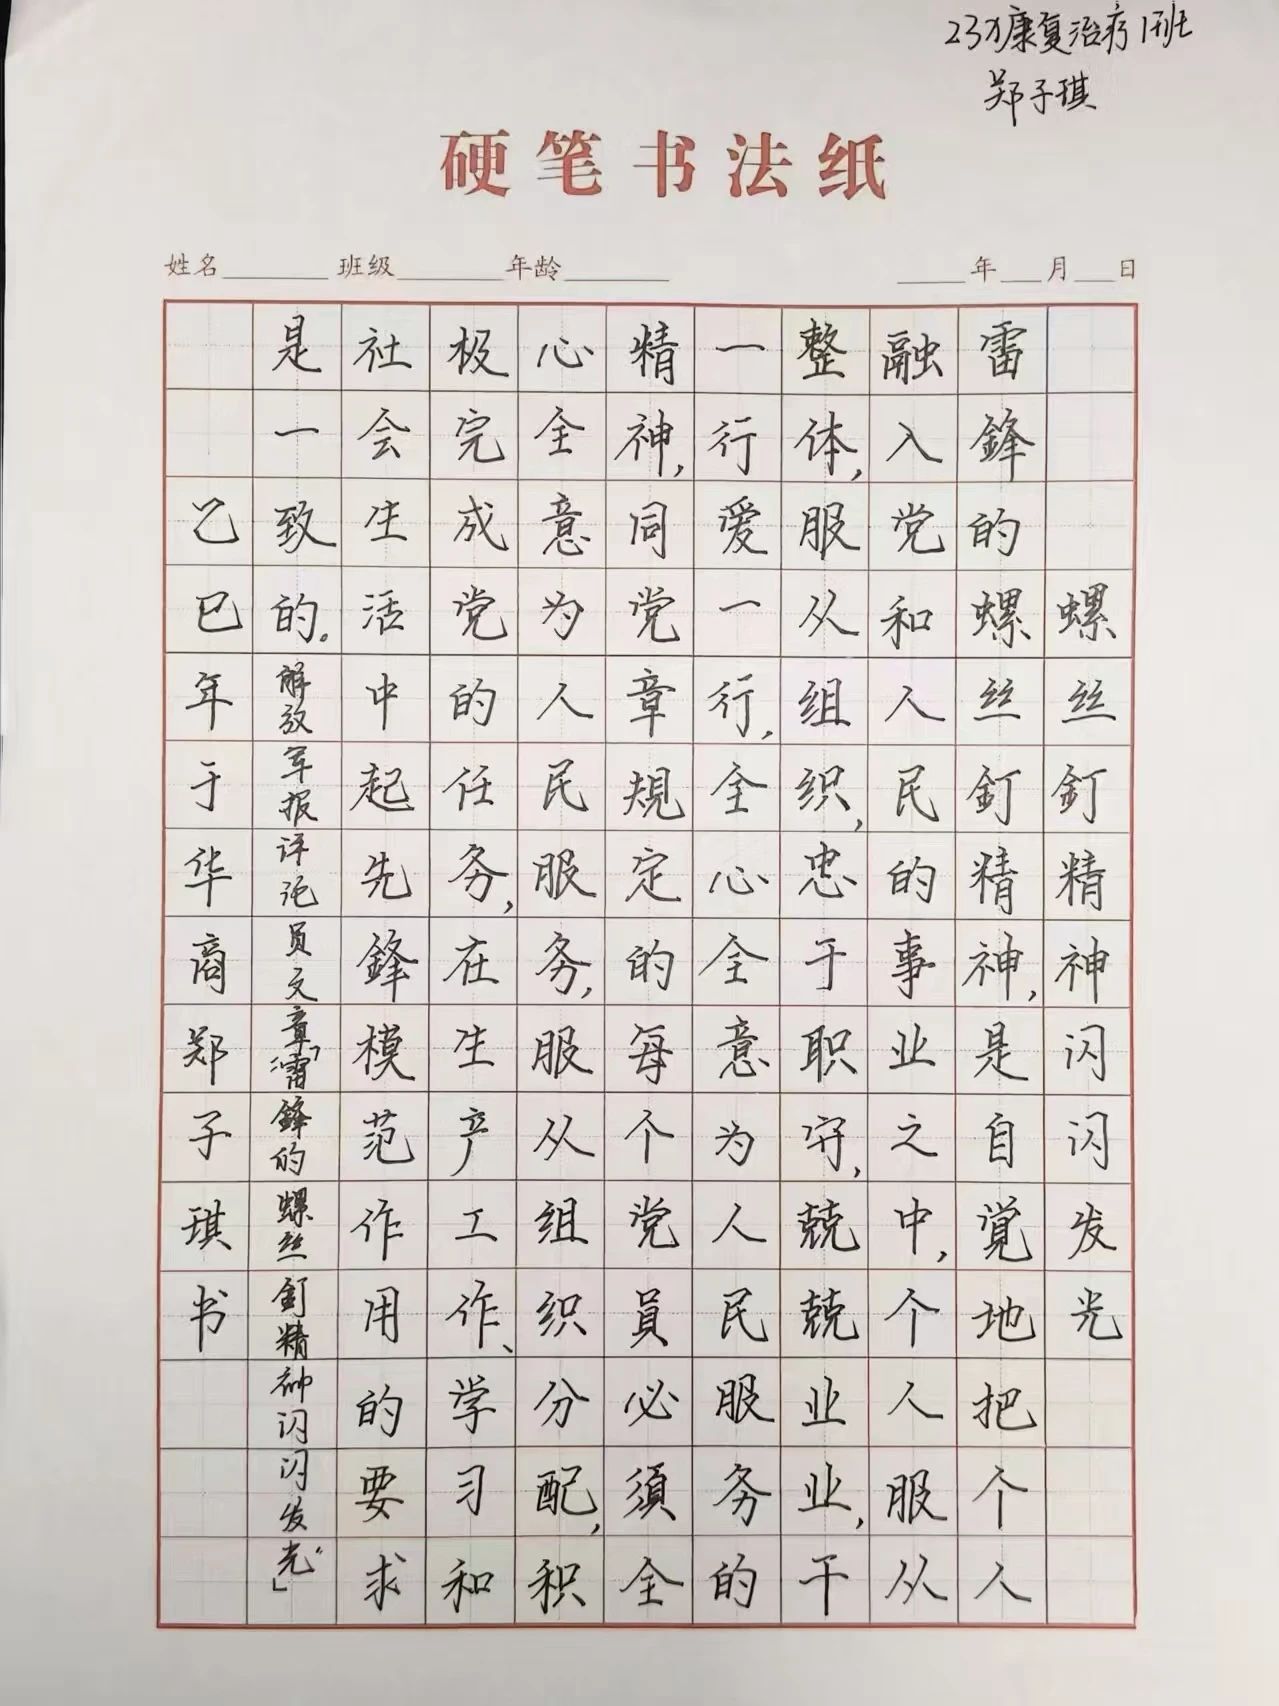 23力康复治疗1班
郑子琪
硬笔书法纸
姓名 班级 年龄 年 月 日
螺丝釘精神闪闪发光
雷鋒的螺丝釘精神,是自覚地把个人
融入党和人民的事业之中,个人服从
整体,服从组织,忠于职守,兢兢业业,干
一行爱一行,全心全意为人民服务的
精神,同党章規定的每个党員必須全
心全意为人民服务,服从组织分配,积
极完成党的任务,在生产工作、学习和
社会生活中起先鋒模范作用的要求
是一致的。解放军报评论员文章“雷鋒的螺丝釘精神闪闪发光”
乙巳年于华商郑子琪书